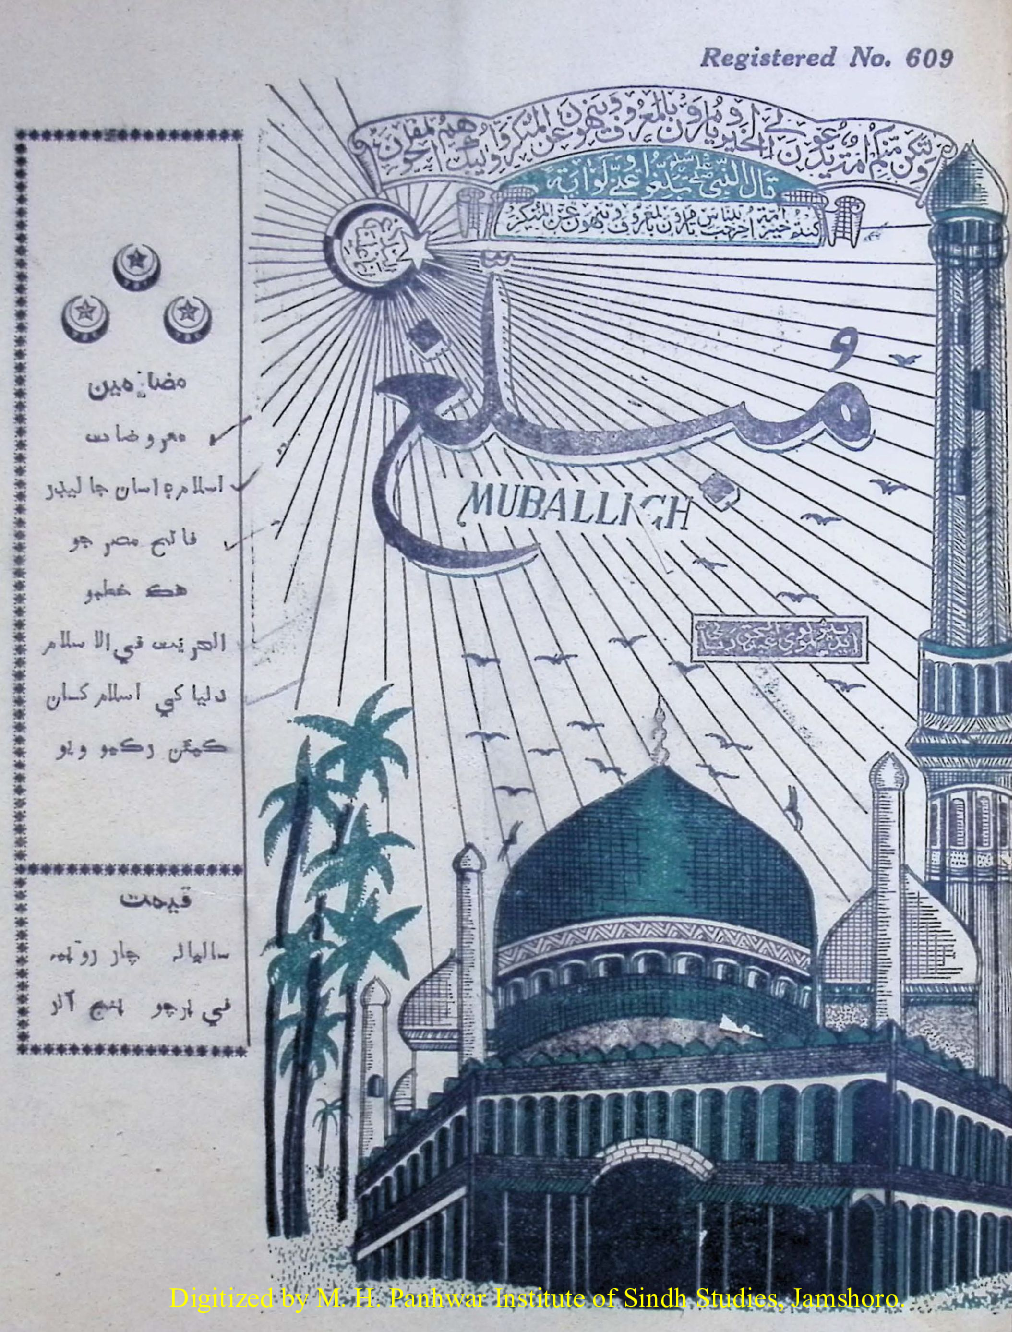 Registered No. 609
ولتكن منكم امة يدعون الى الخير ويامرون بالمعروف وينهون عن المنكر واوليك هم المفلحون
قال النبي صلعم بلغوا عني ولو اية
كنتم خير امة اخرجت للناس تامرون بالمعروف وتنهون عن المنكر
مُبلّغ
MUBALLIGH
مضامين
معروضات
اسلام ۽ اسان جا ليڊر
فاتح مصر جو
هڪ خطبو
الحريت في الاسلام
دنيا کي اسلام کان
ڪيئن رکيو ويو
قيمت
ساليانه چار روپيه
في پرچو پنج آنر
Digitized by M. H. Panhwar Institute of Sindh Studies, Jamshoro.